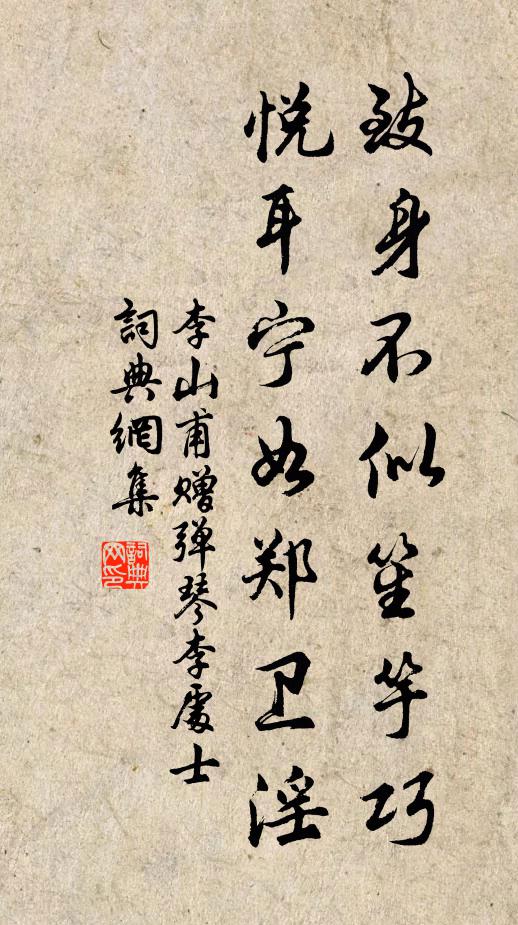 致身不似笙竽巧
悦耳宁如郑卫淫
李山甫赠弹琴李處士
詞典網集
詞典網印